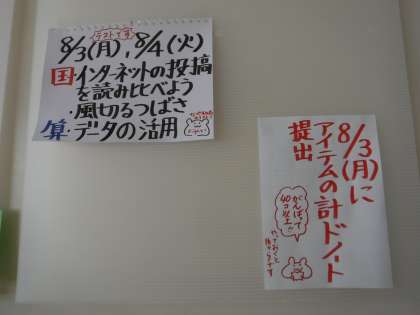 テストです
8/3(月),8/4(火)
国・インターネットの投稿
を読み比べよう
・風切るつばさ
算・データの活用
8/3(月)に
アイテムの計ドノート
提出
がんばって
40コ以上!!